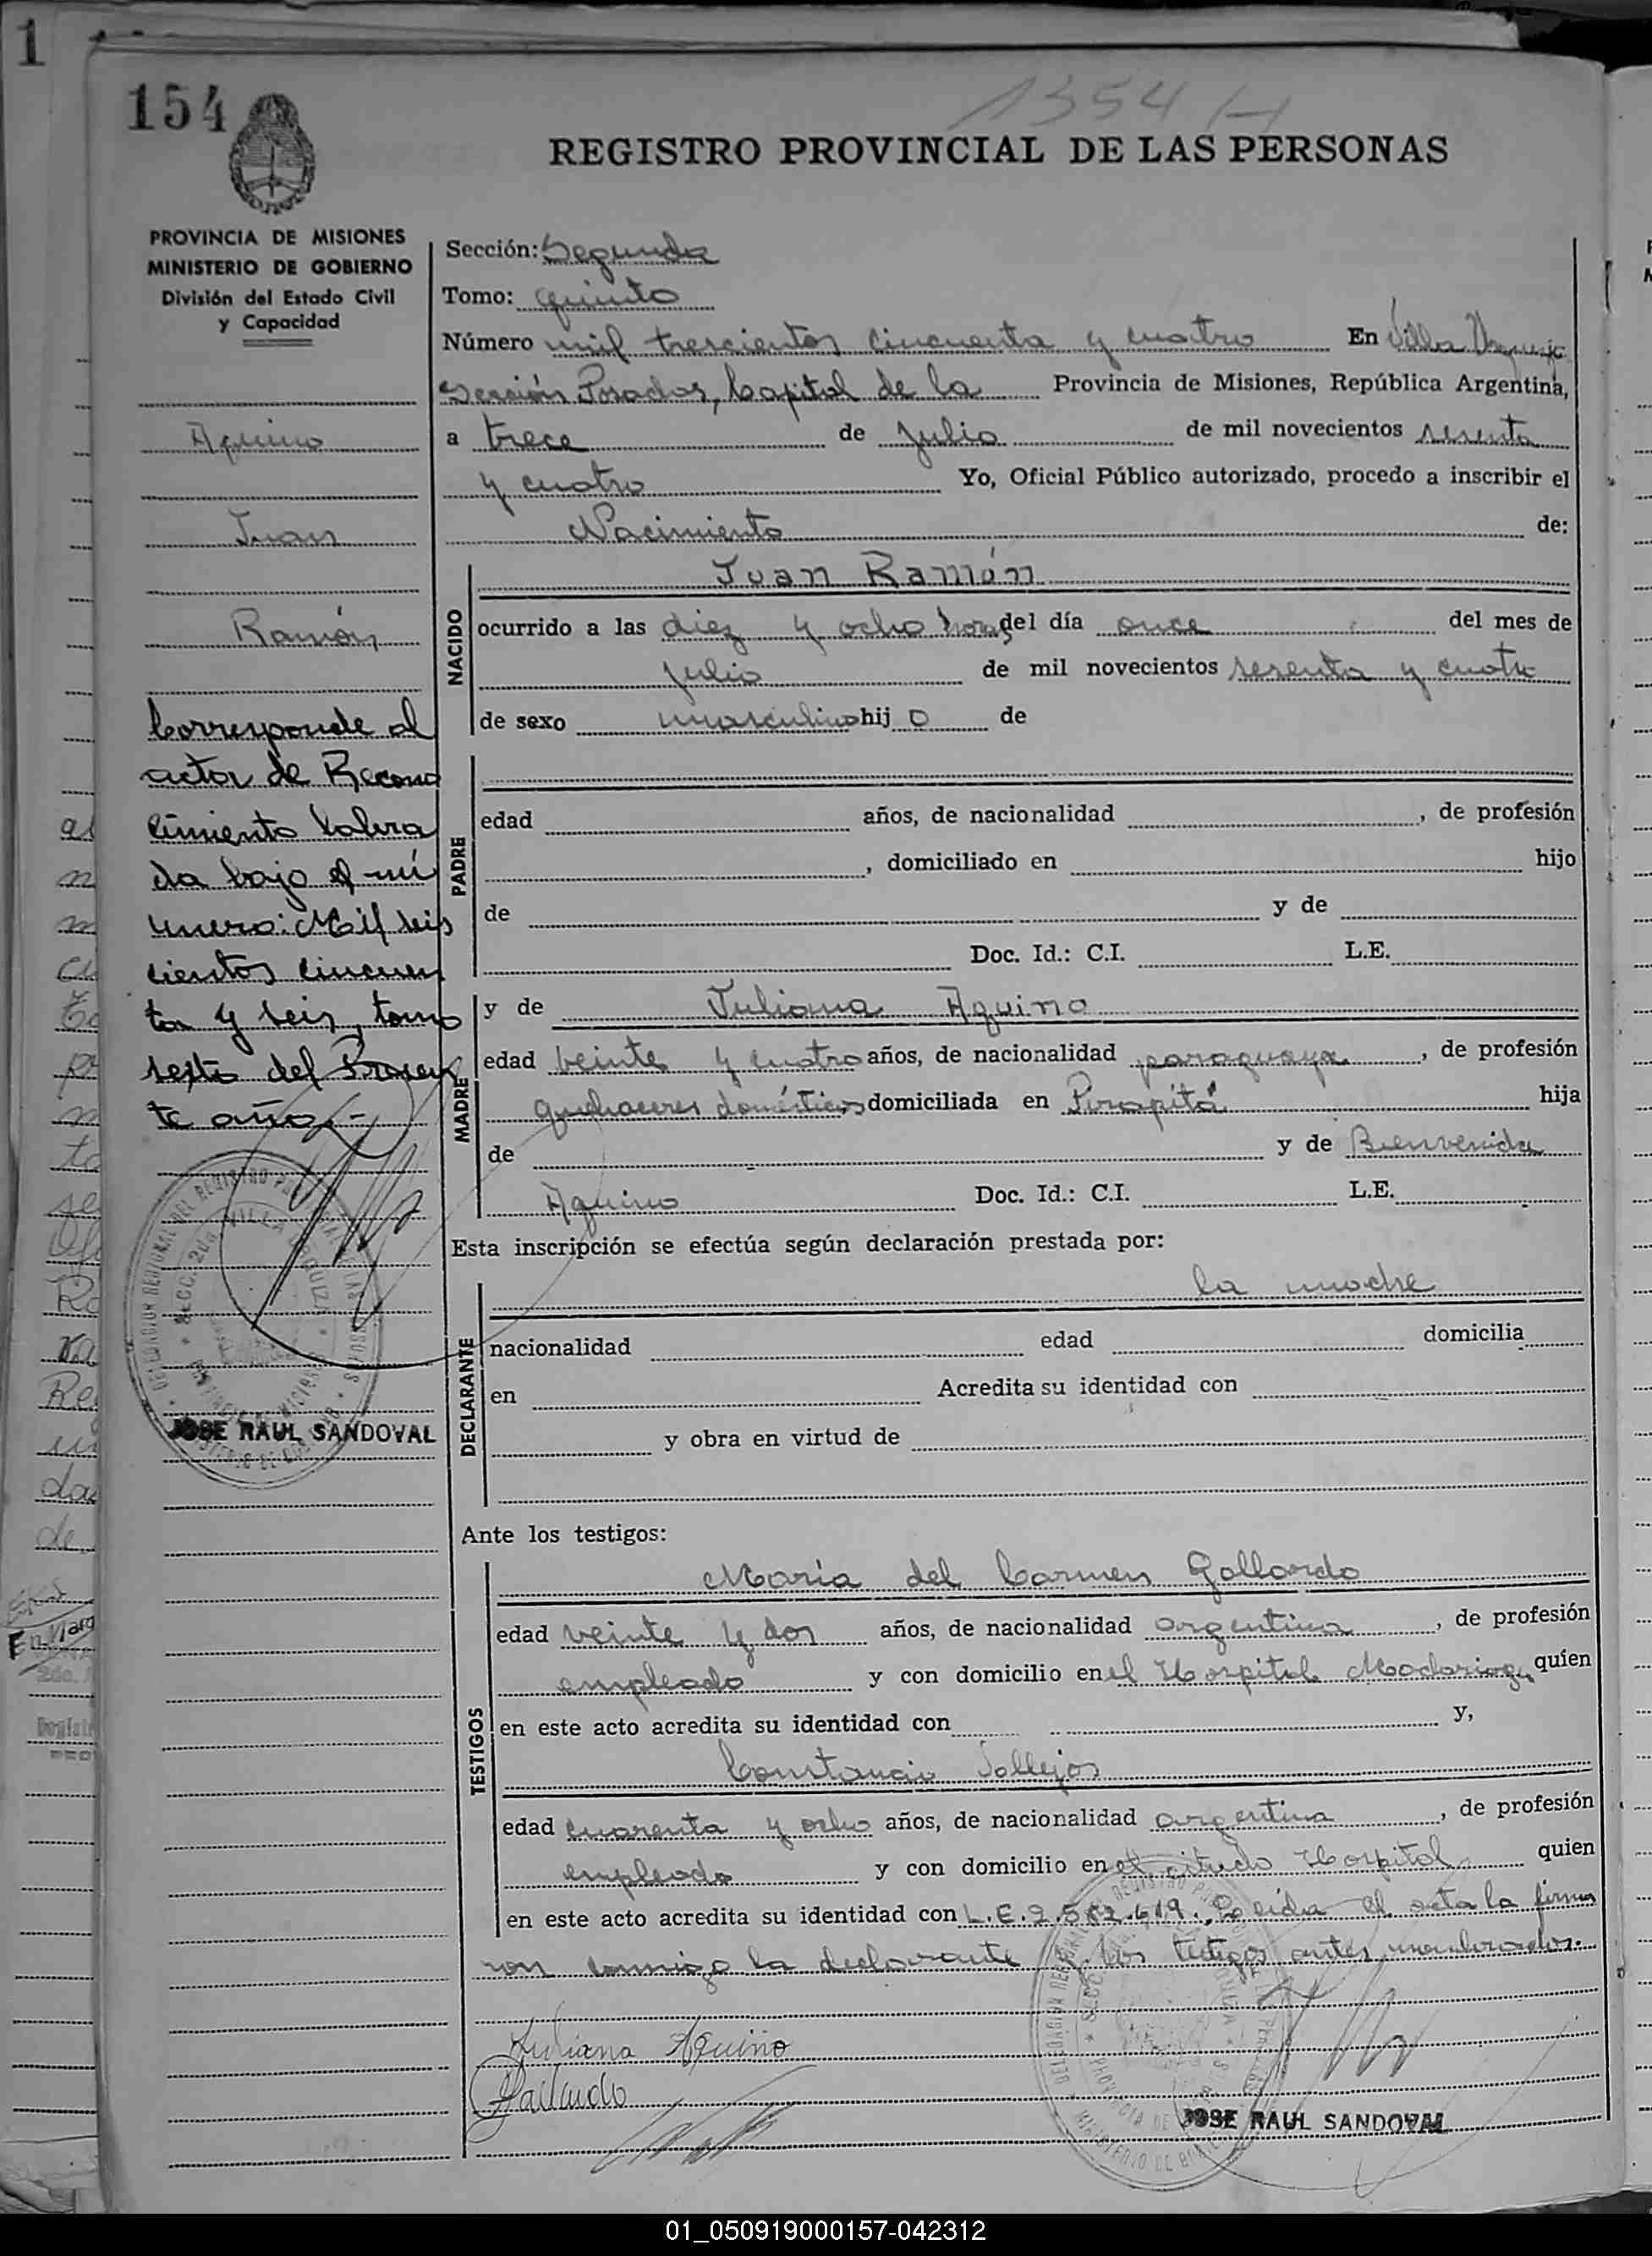 1
154
1354 H
REGISTRO PROVINCIAL DE LAS PERSONAS
PROVINCIA DE MISIONES
MINISTERIO DE GOBIERNO
División del Estado Civil
y Capacidad
Aquino
Juan
Ramón
Corresponde al
actor de Recono
cimiento labra
da bajo el nú
mero: Mil seis
cientos cincuen
ta y seis, tomo
sexto del Presen
te año.-
JOSE RAUL SANDOVAL
Sección: Segunda
Tomo: quinto
Número mil trescientos cincuenta y cuatro En Villa Urquiza
Sección Posadas, Capital de la Provincia de Misiones, República Argentina,
a trece de Julio de mil novecientos sesenta
y cuatro Yo, Oficial Público autorizado, procedo a inscribir el
Nacimiento de:
NACIDO
Juan Ramón
ocurrido a las diez y ocho horas del día once del mes de
Julio de mil novecientos sesenta y cuatro
de sexo masculino hij o de
PADRE
edad años, de nacionalidad , de profesión
, domiciliado en hijo
de y de
Doc. Id.: C.I. L.E.
MADRE
y de Juliana Aquino
edad veinte y cuatro años, de nacionalidad paraguaya , de profesión
quehaceres domésticos domiciliada en Pirapitá hija
de y de Bienvenida
Aquino Doc. Id.: C.I. L.E.
Esta inscripción se efectúa según declaración prestada por:
DECLARANTE
la madre
nacionalidad edad domicilia
en Acredita su identidad con
y obra en virtud de
Ante los testigos:
TESTIGOS
María del Carmen Gallardo
edad veinte y dos años, de nacionalidad argentina , de profesión
empleado y con domicilio en el Hospital Madariaga, quien
en este acto acredita su identidad con y,
Constancio Vallejos
edad cuarenta y ocho años, de nacionalidad argentina , de profesión
empleado y con domicilio en el citado Hospital quien
en este acto acredita su identidad con L.E. 2.582.419. Leída el acta la firma
ron conmigo la declarante y los testigos antes nombrados.
Juliana Aquino
Gallardo
JOSE RAUL SANDOVAL
01_050919000157-042312